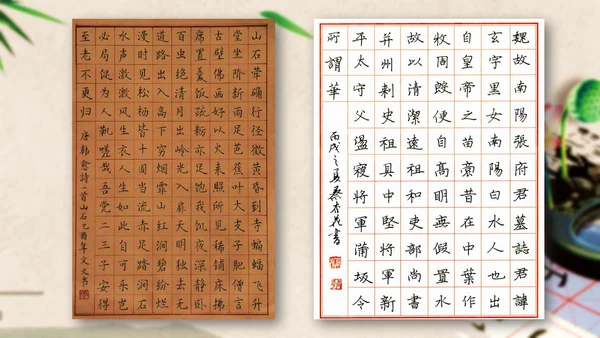 山石荦确行径微黄昏到寺蝙蝠飞升
堂坐阶新雨足芭蕉叶大支子肥僧言
古壁佛画好以火来照所见稀铺床拂
席置羹饭疏粝亦足饱我饥夜深静卧
百虫绝清月出岭光入扉天明独去无
道路出入高下穷烟霏山红涧碧纷烂
漫时见松枥皆十围当流赤足踏涧石
水声激激风生衣人生如此自可乐岂
必局促为人鞿嗟哉吾党二三子安得
至老不更归 唐韩愈诗一首山石乙酉年文义书
魏故南陽張府君墓誌君諱
玄字黑女南陽白水人也出
自皇帝之苗裔昔在中葉作
牧周殷便自高明無假置水
故以清潔遠祖和吏部尚書
并州刺史祖具中堅將軍新
平太守父盪寇將軍蒲坂令
所謂華
丙戌之夏秦杏花書